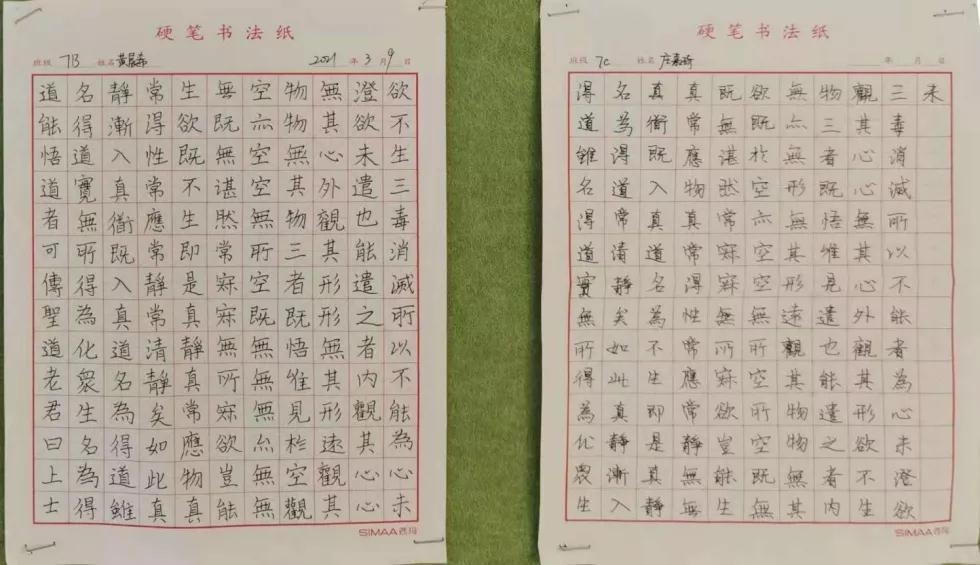 硬笔书法纸
班级 7B 姓名 黄晨希 2021 年 3 月 9 日
欲不生三毒消滅所以不能為心未
澄欲未遣也能遣之者内觀其心心
無其心外觀其形形無其形遠觀其
物物無其物三者既悟唯見於空觀
空亦空空無所空既無無無亦無無
無既無湛然常寂寂無所寂欲豈能
生欲既不生即是真靜真常應物真
常得性常應常靜常清靜矣如此真
靜漸入真衜既入真道名為得道雖
名得道實無所得為化衆生名為得
道能悟道者可傳聖道老君曰上士
SIMAA西玛
硬笔书法纸
班级 7C 姓名 年 月 日
未
三毒消滅所以不能者為心未澄欲
觀其心心無其心外觀其形欲不生
物三者既悟唯見遣也能遣之者内
無亦無形無其形遠觀其物物無其
欲既於空亦空空無所空所空既無
既無湛然常寂寂無所寂欲豈能生
真常應物真常得性常應常靜無無
真衜既入真道名為不生即是真靜
名為得道常清靜矣如此真靜漸入
得道雖名得道實無所得為化衆生
SIMAA西玛